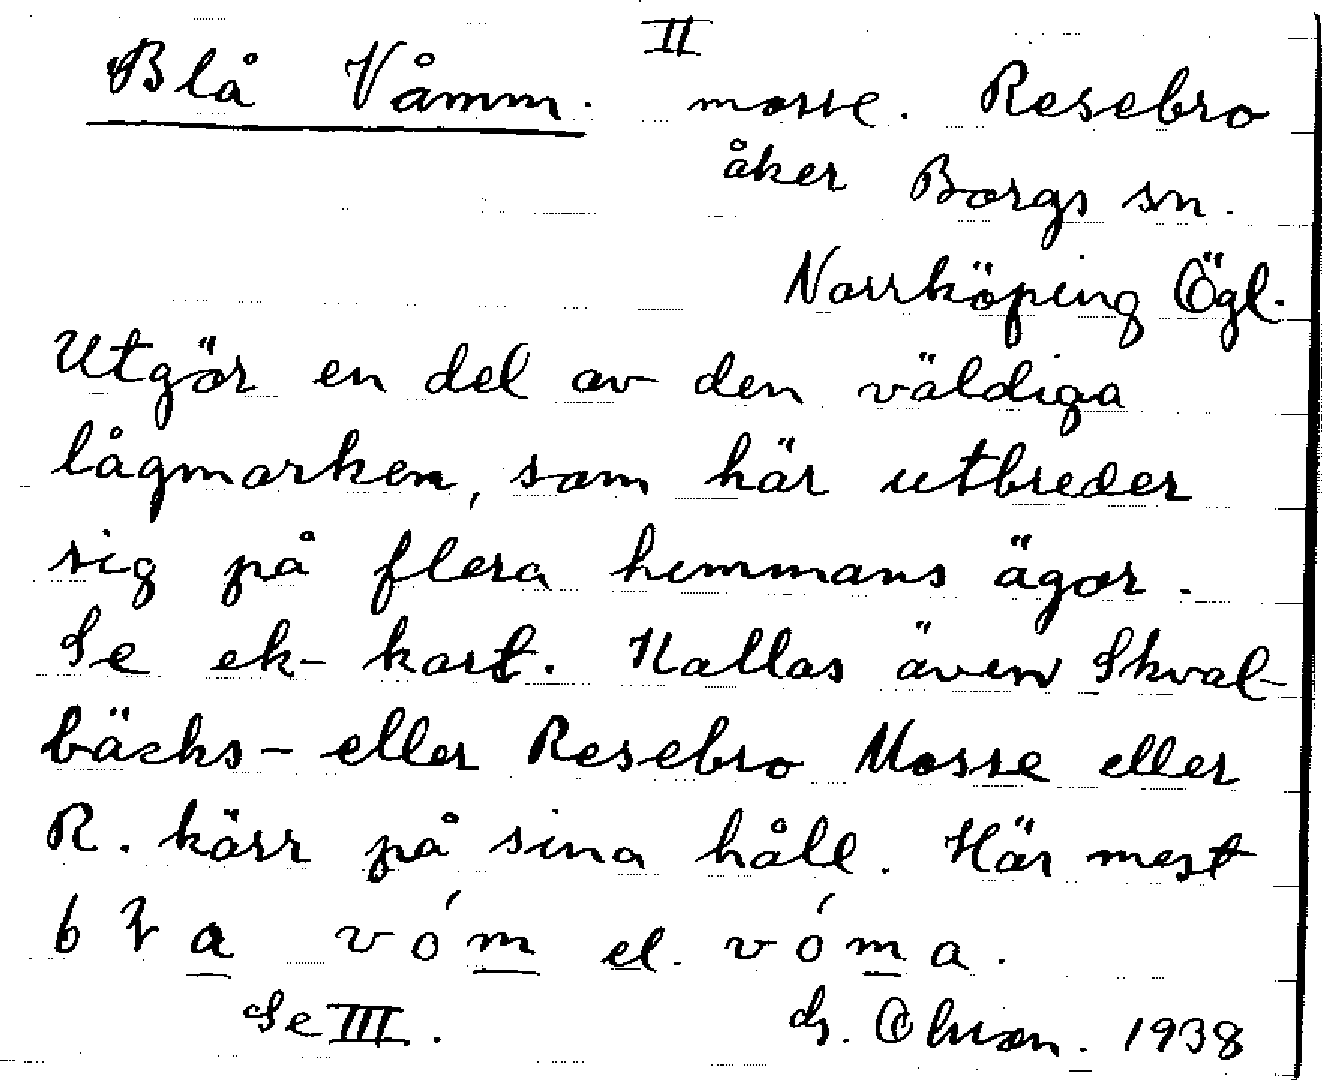 II
Blå Våmm. mosse. Resebro
åker Borgs sn.
Norrköping Ögl.
Utgör en del av den väldiga
lågmarken, som här utbreder
sig på flera hemmans ägor.
Se ek-kart. Kallas även Skval-
bäcks- eller Resebro Mosse eller
R. kärr på sina håll. Här mest
vóm el. vóma.
Se III. 1938